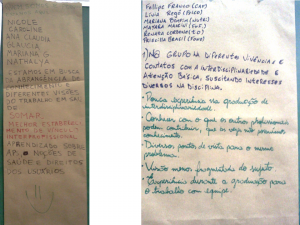 NICOLE
CAROLINE
ANA CLAUDIA
GLAUCIA
MARIANA S
NATHALYA
ESTAMOS EM BUSCA
DE ABRANGÊNCIA DE
CONHECIMENTO E
DIFERENTES VISÕES
DO TRABALHO EM SAÚ
DE
SOMAR
MELHOR ESTABELECI
MENTO DE VÍNCULO
INTERPROFISSIONAL
APRENDIZADO SOBRE
APS, NOÇÕES DE
SAÚDE E DIREITOS
DOS USUÁRIOS
Fellipe FRANCO
LÍVIA
MARIANA
MAYARA
RENATA
PRISCILLA BRASIL (FONO)
1) NO GRUPO HÁ DIFERENTES VIVÊNCIAS E
CONTATOS COM A INTERDISCIPLINARIDADE E
ATENÇÃO BÁSICA, SUSCITANDO INTERESSES
DIVERSOS NA DISCIPLINA.
- Pouca experiência na graduação de
interdisciplinaridade.
- Conhecer com o que os outros profissionais
podem contribuir, que eu veja não possuímos
conhecimento.
- Diversos pontos de vista para o mesmo
problema.
- Visão menos fragmentada do sujeito
- Experiência durante a graduação para
o trabalho com equipe.